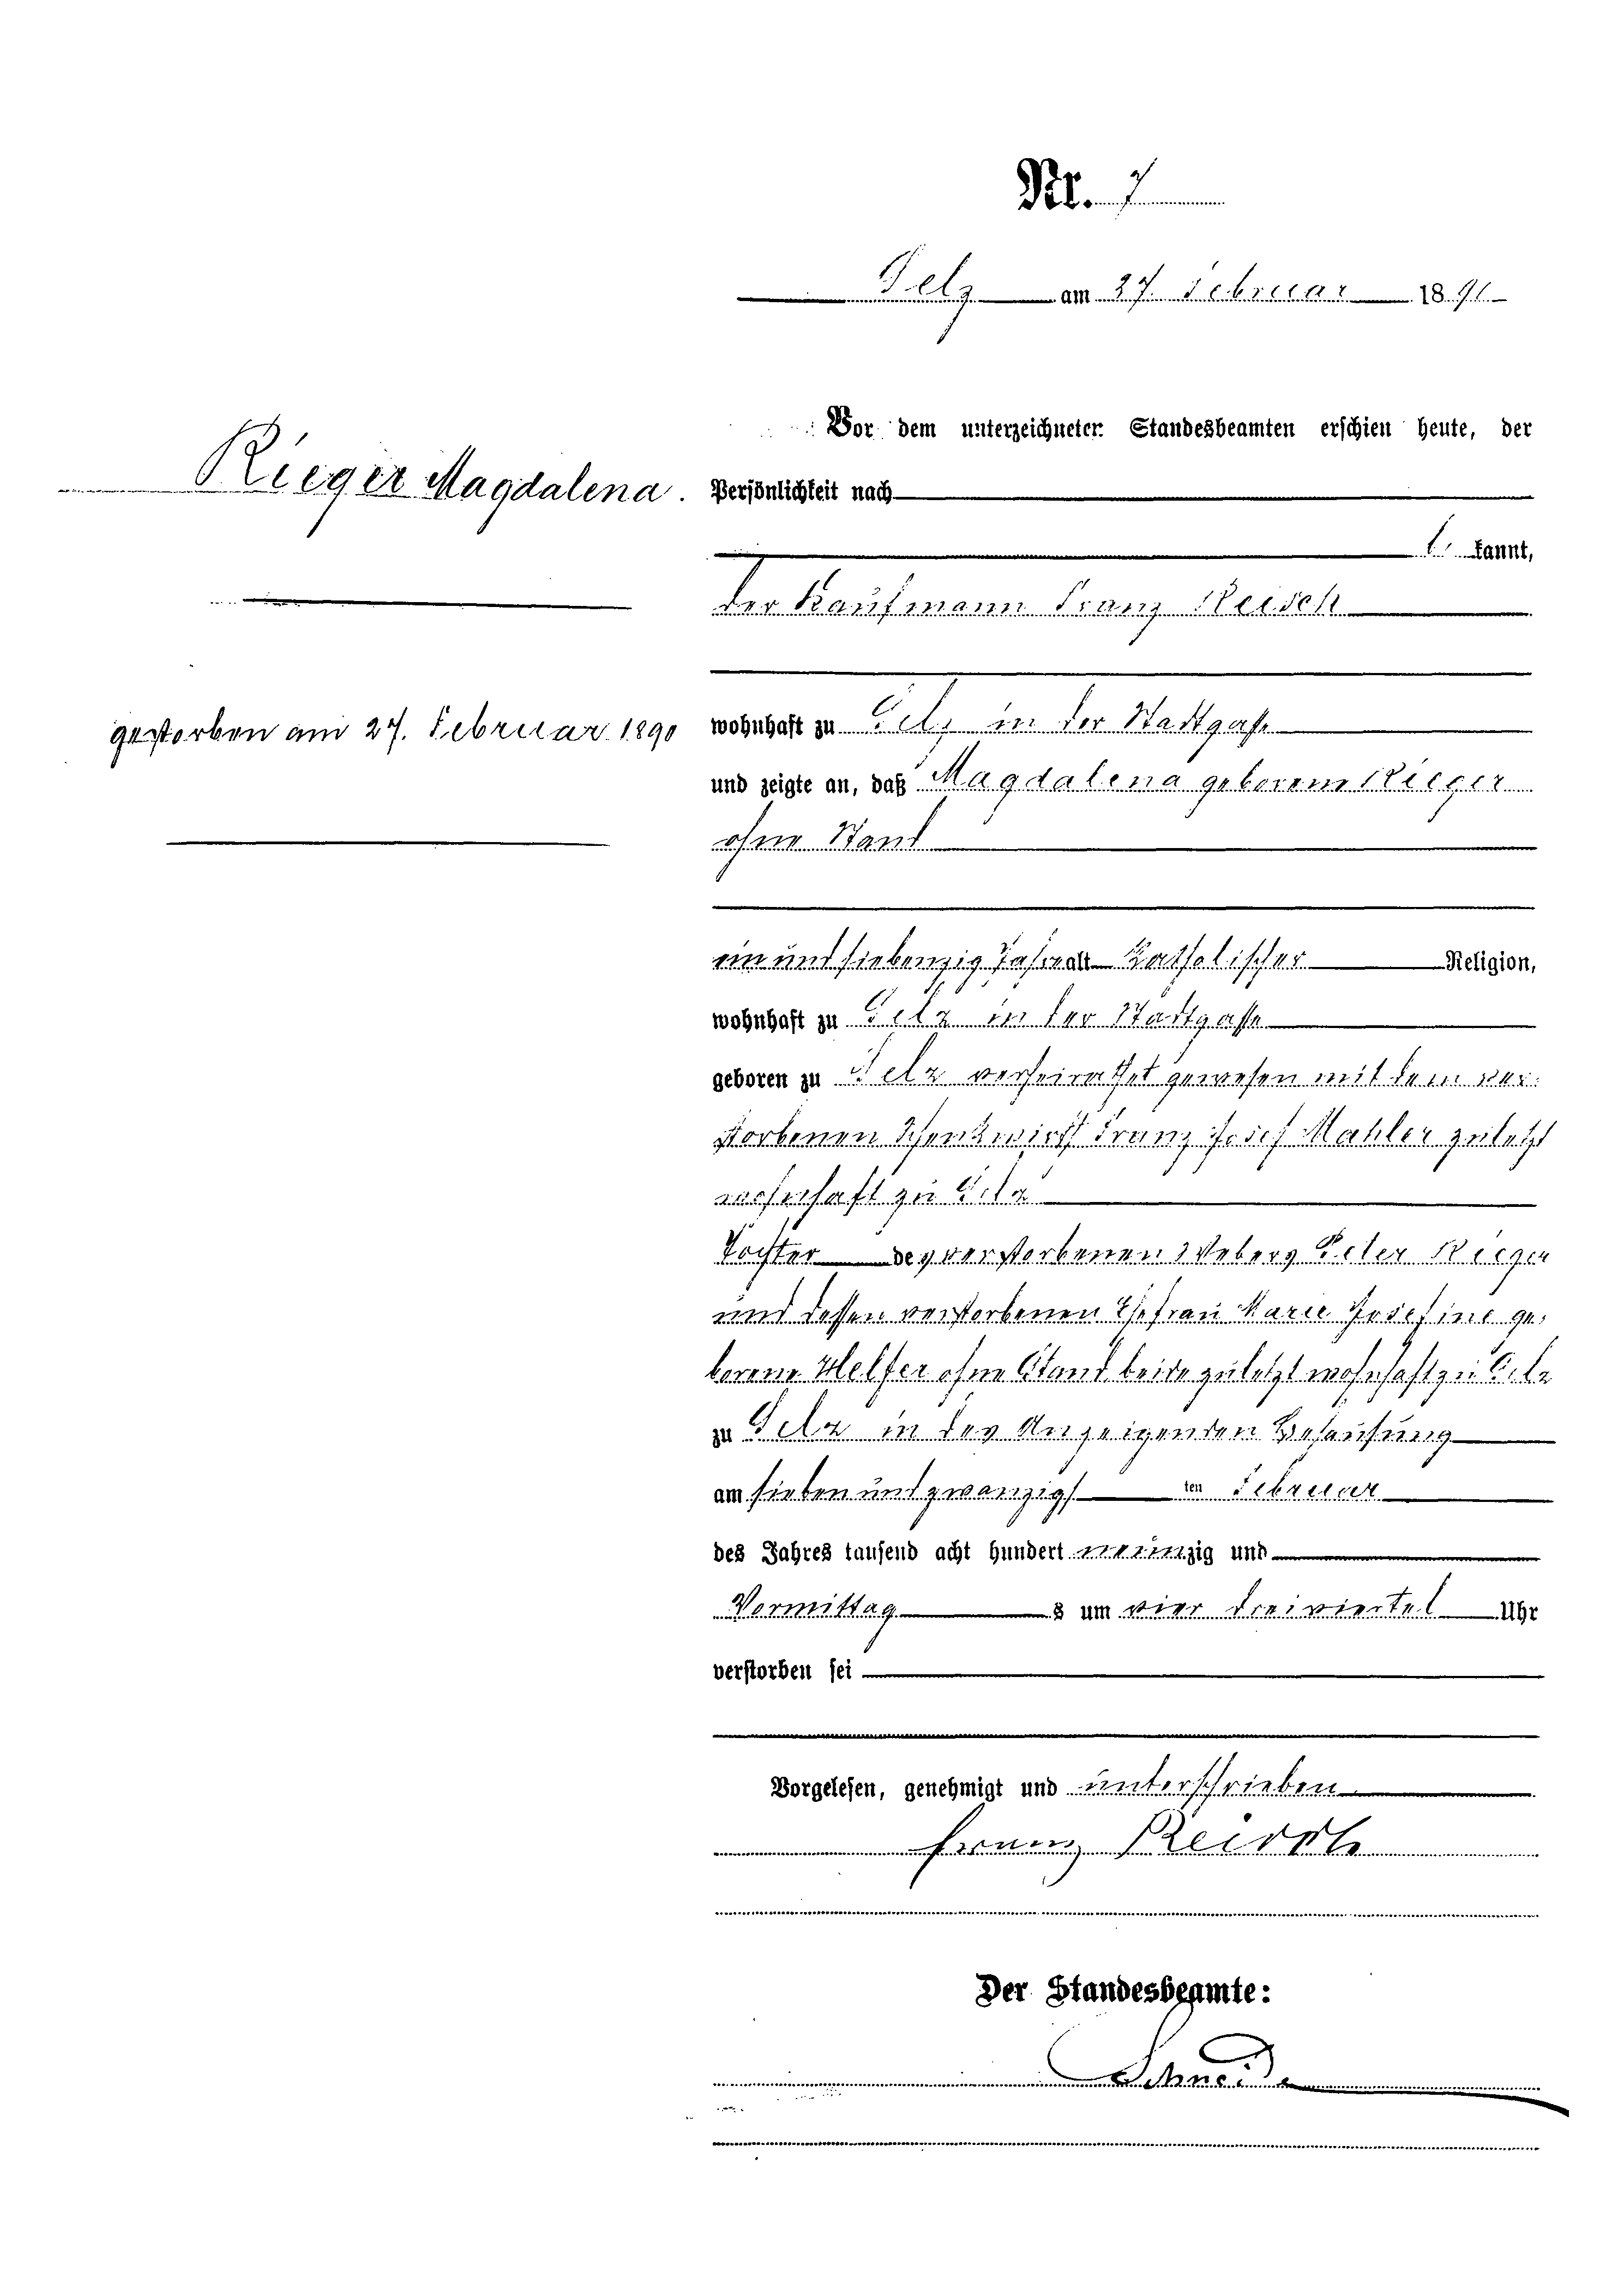 Nr. 7
Selz am 27. Februar 189
Vor dem unterzeichneten Standesbeamten erschien heute, der
Rieger Magdalena.
Persönlichkeit nach
kannt,
der Kaufmann Franz Reisch
gestorben am 27. Februar 1890
wohnhaft zu Selz in der Stadtgasse
und zeigte an, daß Magdalena geborene Rieger
ohne Stand
ein und siebenzig Jahre alt Katholischer Religion,
wohnhaft zu Selz in der Stadtgasse
geboren zu Selz verheirathet gewesen mit dem ver-
storbenen Schenkwirth Franz Josef Mahler zuletzt
wohnhaft zu Selz
Tochter des verstorbenen Webers Peter Rieger
und dessen verstorbenen Ehefrau Marie Josefine ge-
borene Helfer ohne Stand beide zuletzt wohnhaft zu Selz
zu Selz in des Anzeigenden Behausung
am sieben und zwanzigsten Februar
des Jahres tausend acht hundert neunzig und
Vormittags um vier dreiviertel Uhr
verstorben sei
Vorgelesen, genehmigt und unterschrieben
Franz Reisch
Der Standesbeamte:
Schneider